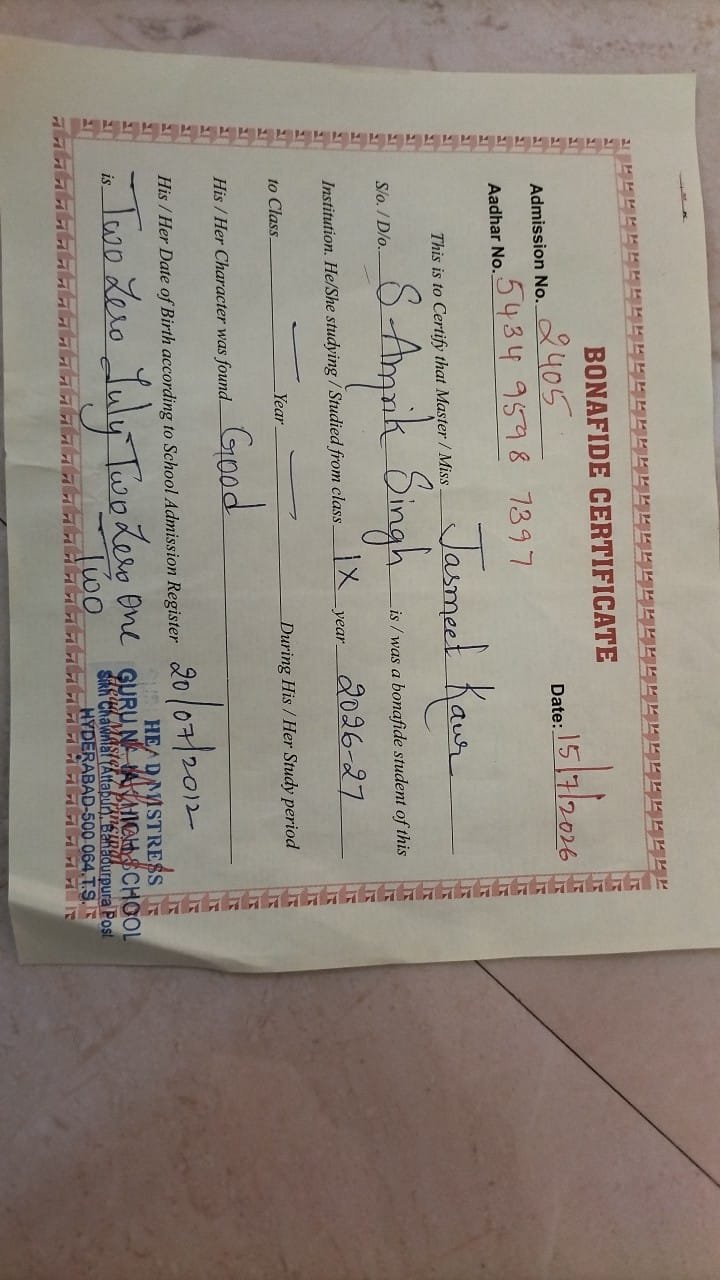 BONAFIDE CERTIFICATE
Admission No. 2405 Date: 15/7/2026
Aadhar No. 5434 9598 7397
This is to Certify that Master / Miss Jasmeet Kaur
S/o. / D/o. S. Amrik Singh is / was a bonafide student of this
Institution. He/She studying / Studied from class IX year 2026-27
to Class — Year — During His / Her Study period
His / Her Character was found Good
His / Her Date of Birth according to School Admission Register 20/07/2012
is Two Zero July Two Zero One
Two
HEADMISTRESS
GURU NANAK HIGH SCHOOL
Sikh Chawni (Attapur), Bahadurpura Post
HYDERABAD-500 064.T.S.